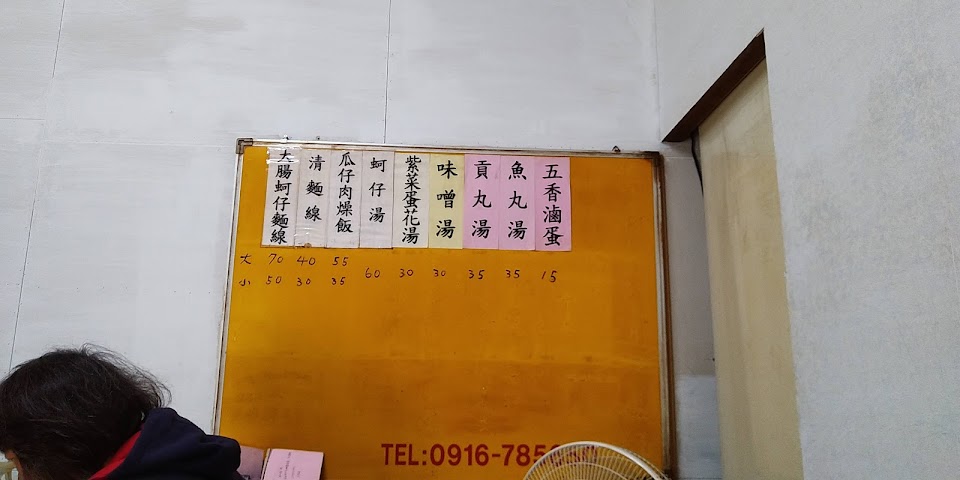 大腸蚵仔麵線
清麵線
瓜仔肉燥飯
蚵仔湯
紫菜蛋花湯
味噌湯
貢丸湯
魚丸湯
五香滷蛋
大 70 40 55
小 50 30 35 60 30 30 35 35 15
TEL:0916-785